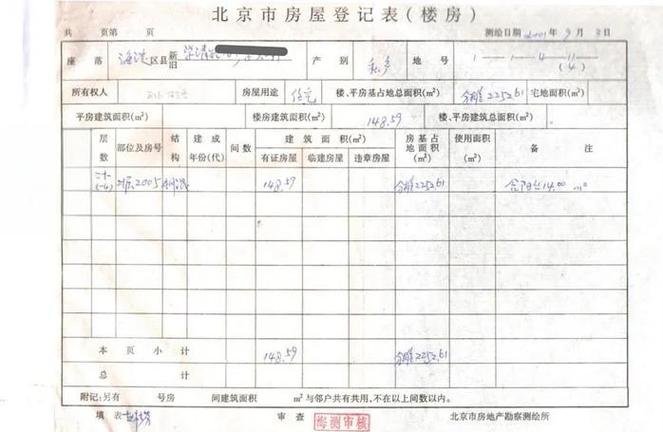 北京市房屋登记表(楼房)
共 页第 页 测绘日期2001年9月3日
座落 海淀区县 新旧 产别 私产 地号 1-1-4-11 (4)
所有权人 房屋用途 住宅 楼、平房基占地总面积(m²) 分摊2252.61 宅地面积(m²)
平房建筑面积(m²) 楼房建筑面积(m²) 148.59 楼、平房建筑总面积(m²)
层数 部位及房号 结构 建成年份(代) 间数 建筑面积(m²) 房基占地面积(m²) 使用面积(m²) 备注
有证房屋 临建房屋 违章房屋
2005 148.59 分摊2252.61 含阳台14.00 m²
本页小计 148.59 分摊2252.61
总计
附记:另有 号房 间建筑面积 m²与邻户共有共用,不在以上间数以内。
填表 审查 海测审核 北京市房地产勘察测绘所